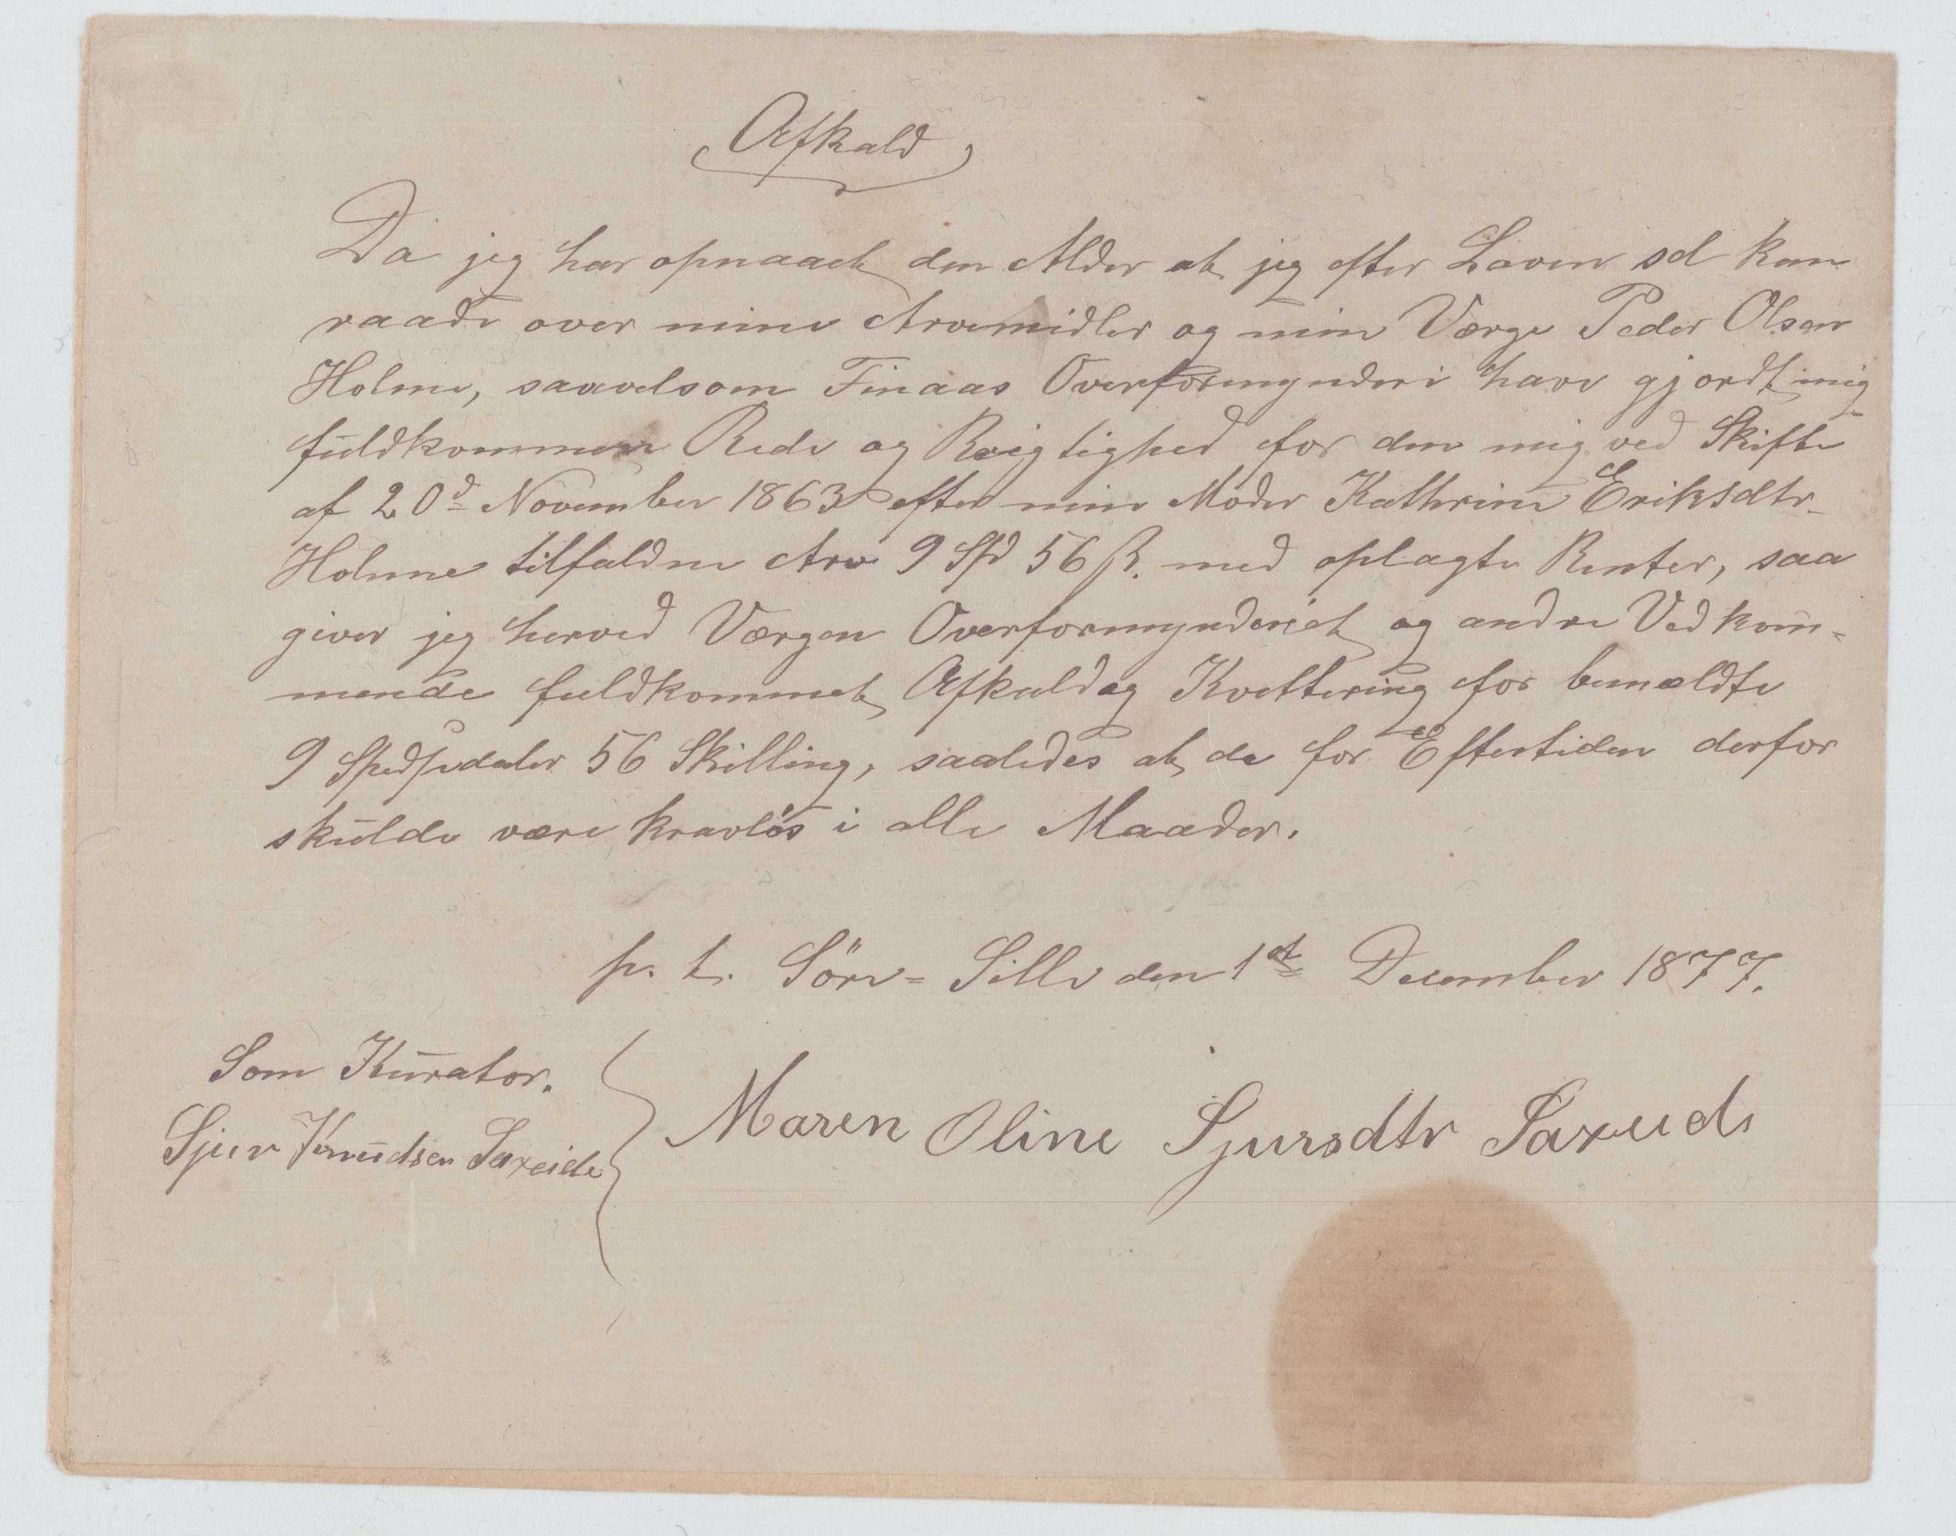 Afkald
Da jeg har opnaaet den Alder at jeg efter Loven sel kan
raade over mine Arvemidler og min Værge Peder Olsen
Holme, saavelsom Finaas Overformynderi have gjordt mig
fuldkommen Rede og Rigtighed for den mig ved Skifte
af 20d November 1863 efter min Moder Kathrine Eriksdtr
Holme tilfaldne Arv 9 Spd 56 ß. med oplagte Renter, saa
giver jeg herved Værgen Overformynderiet og andre Vedkom-
mende fuldkommet Afkald og Kvittering for bemældte
9 Spedsidaler 56 Skilling, saaledes at de for Eftertiden derfor
skulde være kravløs i alle Maader.
p. t. Søre-Lille den 1st December 1877.
Som Kurator.
Sjur Knudsen Saxeide
Maren Oline Sjursdtr Saxeide